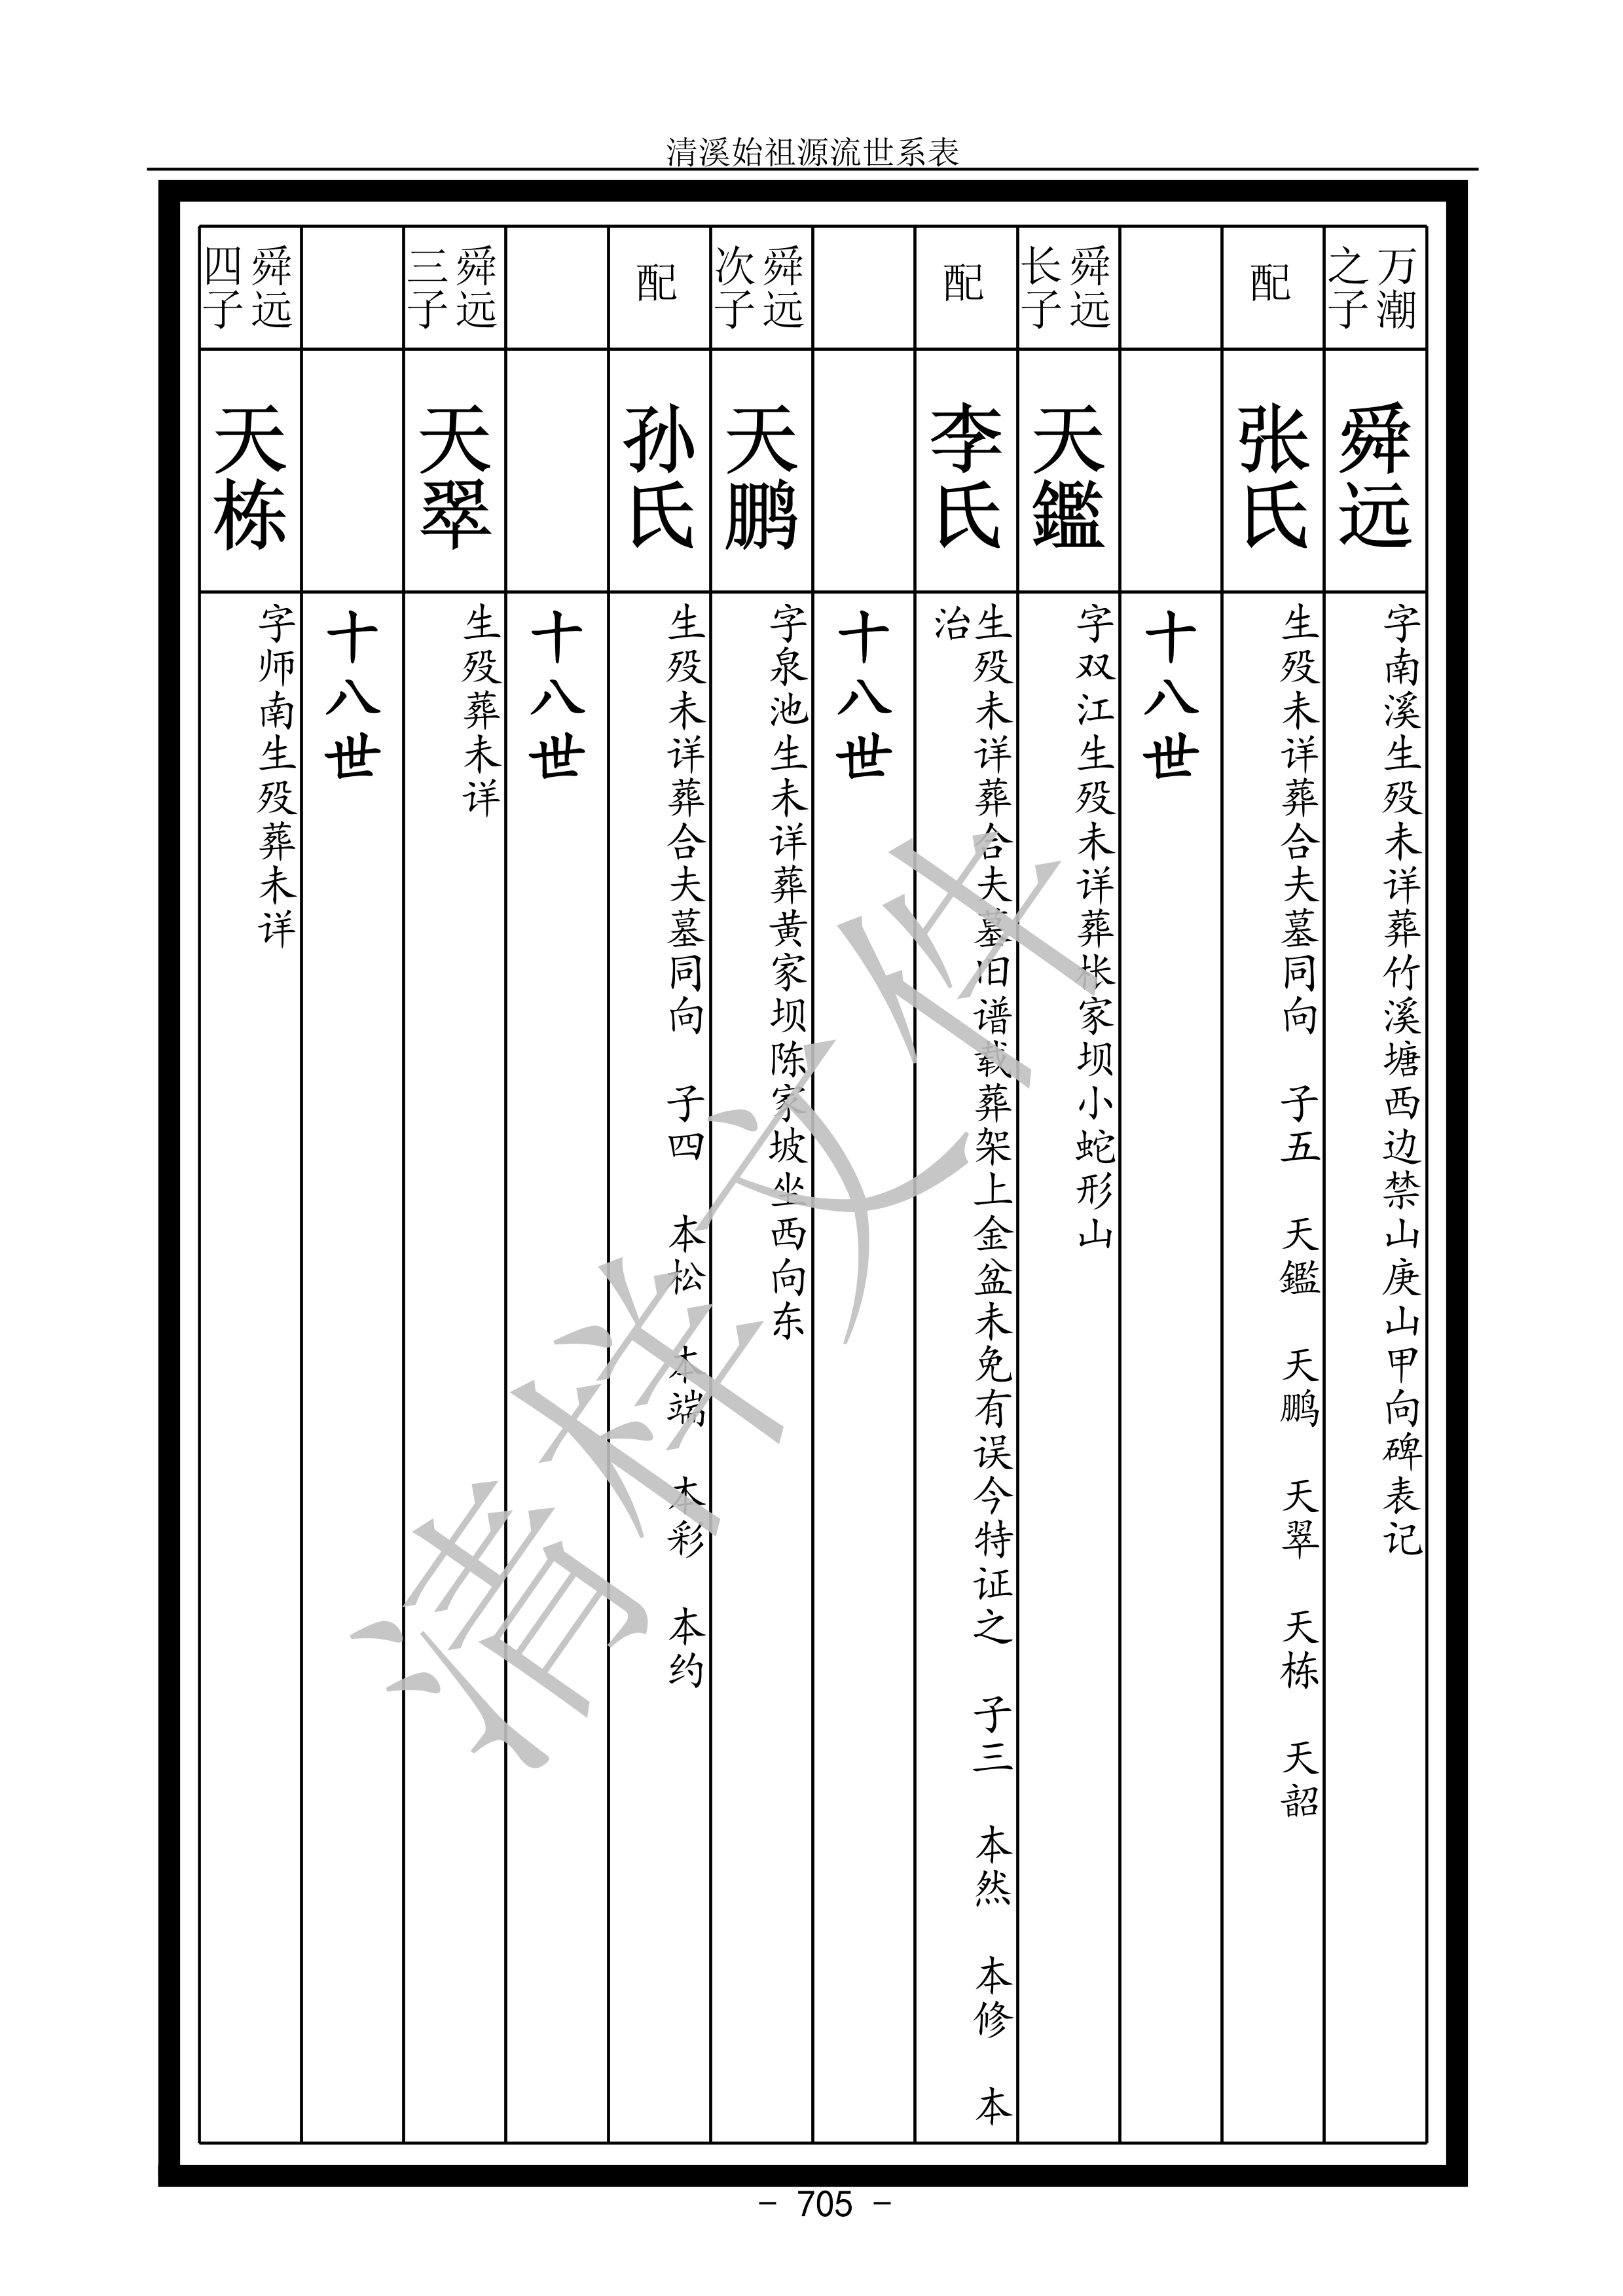 清溪始祖源流世系表
万潮
之子
舜远
字南溪生殁未详葬竹溪塘西边禁山庚山甲向碑表记
配
张氏
生殁未详葬合夫墓同向　子五　天鑑　天鹏　天翠　天栋　天韶
十八世
舜远
长子
天鑑
字双江生殁未详葬枨家坝小蛇形山
配
李氏
生殁未详葬合夫墓旧谱载葬架上金盆未免有误今特证之　子三　本然　本修　本
治
十八世
舜远
次子
天鹏
字泉池生未详葬黄家坝陈家坡坐西向东
配
孙氏
生殁未详葬合夫墓同向　子四　本松　本端　本彩　本约
十八世
舜远
三子
天翠
生殁葬未详
十八世
舜远
四子
天栋
字师南生殁葬未详
清样文件
- 705 -